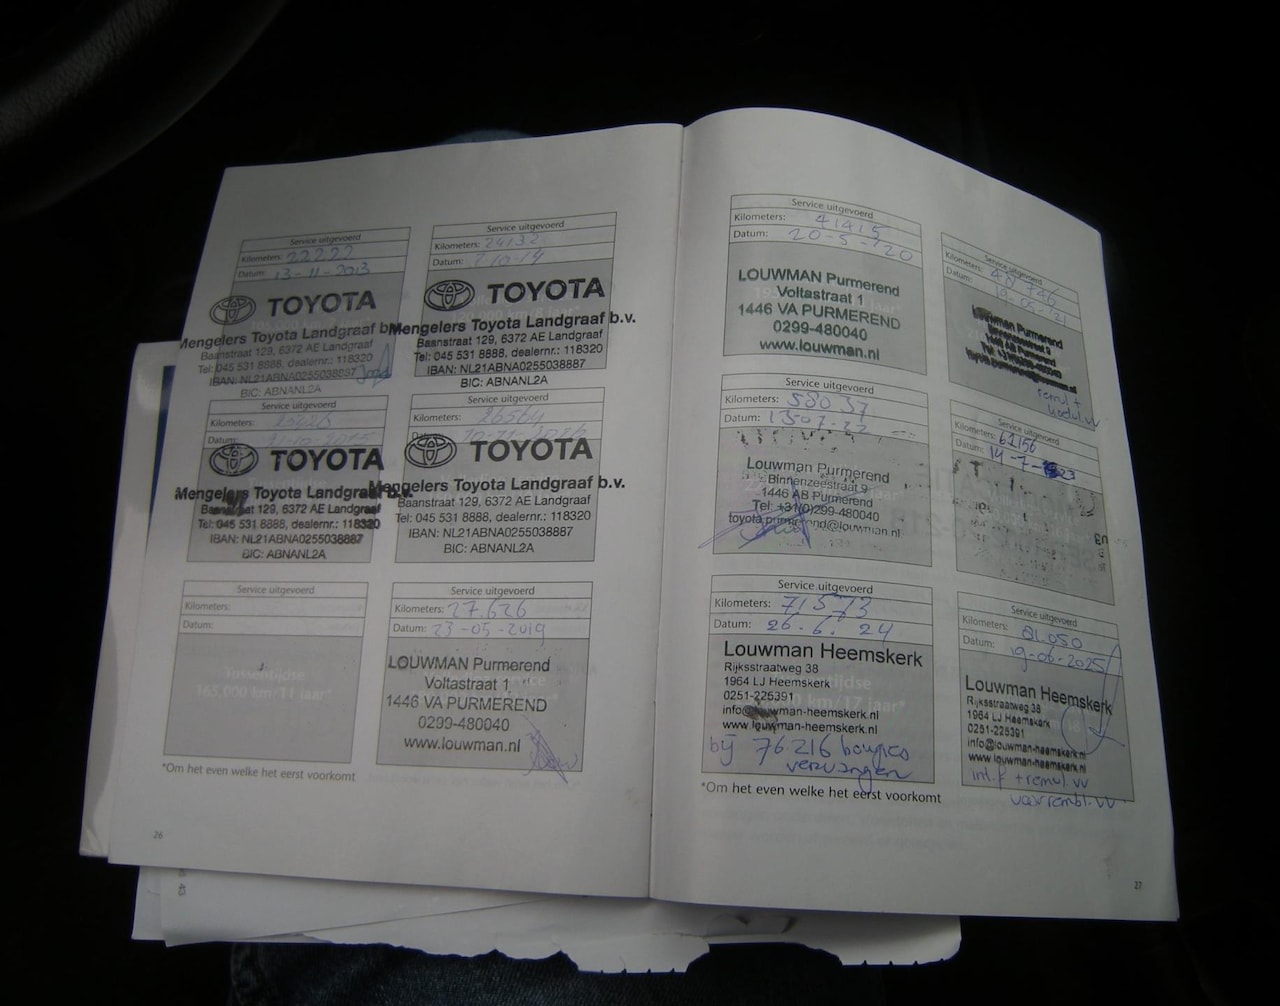 Service uitgevoerd
Kilometers: 22222
Datum: 13-11-2013
TOYOTA
Mengelers Toyota Landgraaf b.v.
Baanstraat 129, 6372 AE Landgraaf
Tel: 045 531 8888, dealernr.: 118320
IBAN: NL21ABNA0255038887
BIC: ABNANL2A
Service uitgevoerd
Kilometers: 24132
Datum:
TOYOTA
Mengelers Toyota Landgraaf b.v.
Baanstraat 129, 6372 AE Landgraaf
Tel: 045 531 8888, dealernr.: 118320
IBAN: NL21ABNA0255038887
BIC: ABNANL2A
Service uitgevoerd
Kilometers:
Datum:
TOYOTA
Mengelers Toyota Landgraaf b.v.
Baanstraat 129, 6372 AE Landgraaf
Tel: 045 531 8888, dealernr.: 118320
IBAN: NL21ABNA0255038887
BIC: ABNANL2A
Service uitgevoerd
Kilometers: 26564
TOYOTA
Mengelers Toyota Landgraaf b.v.
Baanstraat 129, 6372 AE Landgraaf
Tel: 045 531 8888, dealernr.: 118320
IBAN: NL21ABNA0255038887
BIC: ABNANL2A
Service uitgevoerd
Kilometers:
Datum:
Tussentijdse
165,000 km/11 jaar*
Service uitgevoerd
Kilometers: 27.626
Datum: 23-05-2019
LOUWMAN Purmerend
Voltastraat 1
1446 VA PURMEREND
0299-480040
www.louwman.nl
*Om het even welke het eerst voorkomt
26
Service uitgevoerd
Kilometers: 41415
Datum: 20-5-'20
LOUWMAN Purmerend
Voltastraat 1
1446 VA PURMEREND
0299-480040
www.louwman.nl
Service uitgevoerd
Kilometers:
Datum:
Louwman Purmerend
Binnenzeestraat 9
1446 AB Purmerend
remvl +
Service uitgevoerd
Kilometers: 58037
Datum: 13-07-22
Louwman Purmerend
Binnenzeestraat 9
1446 AB Purmerend
Tel: +31(0)299-480040
toyota.purmerend@louwman.nl
Service uitgevoerd
Kilometers: 61156
Datum: 14-7-23
Service uitgevoerd
Kilometers: 71573
Datum: 26.6. 24
Louwman Heemskerk
Rijksstraatweg 38
1964 LJ Heemskerk
0251-225391
info@louwman-heemskerk.nl
www.louwman-heemskerk.nl
bij 76.216 bougies
vervangen
Service uitgevoerd
Kilometers: 81.050
Datum: 19-06-2025
Louwman Heemskerk
Rijksstraatweg 38
1964 LJ Heemskerk
0251-225391
info@louwman-heemskerk.nl
www.louwman-heemskerk.nl
int.f + remvl. vv
voorrembl. vv
*Om het even welke het eerst voorkomt
27